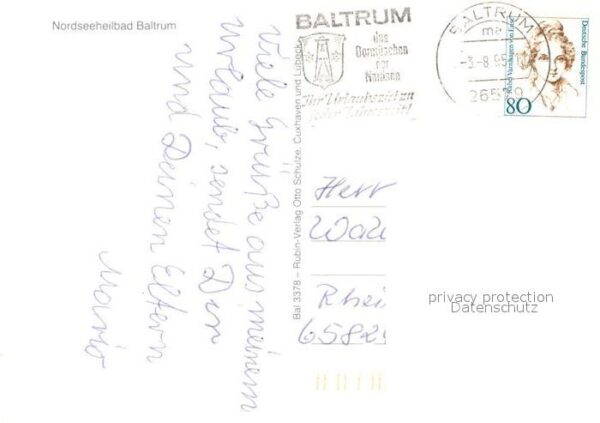 Nordseeheilbad Baltrum
BALTRUM
das
Dornröschen
der
Nordsee
Ihr Urlaubsziel zu
jeder Jahreszeit!
BALTRUM
-3.-8.95
Deutsche Bundespost
Rahel Varnhagen von Ense
80
Viele Grüße aus meinem
Urlaub, sendet Dir
und Deinen Eltern
Mario
Bal 3378 – Rubin-Verlag Otto Schulze, Cuxhaven und Lübeck
Herr
Rhei
65824
privacy protection
Datenschutz